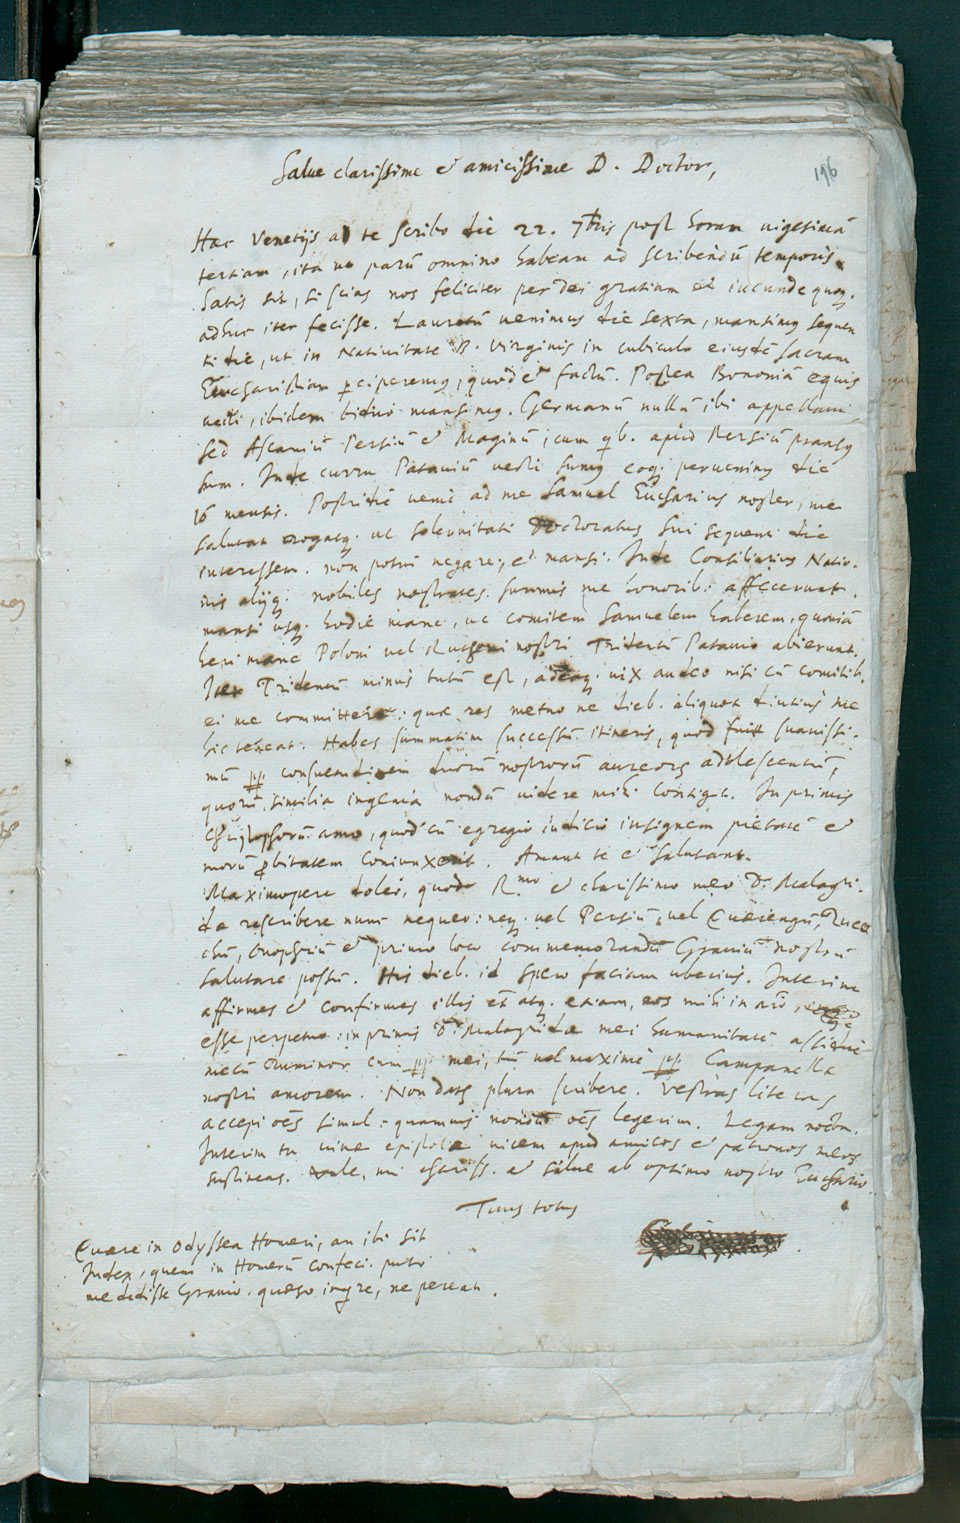 Salue clarissime et amicissime D. Doctor,
196
Hac Venetijs ad te scribo die 22. 7bris post horam uigesimã
tertiam, ita ut parũ omnino habeam ad scribendũ temporis.
Satis sit, si scias nos feliciter per dei gratiam et iucunde quoq.
adhuc iter fecisse. Lauretũ uenimus die sexta, mansimus sequen
ti die, ut in Natiuitate B. Virginis in cubiculo eiusdẽ sacram
Eucharistiam perciperemus, quod et factũ. Postea Bononiã equis
uecti, ibidem biduo mansimus. Germanũ nullũ ibi appellaui,
sed Ascaniũ Persiũ et Maginũ, cum qib. apud Persiũ pransus
sum. Inde curru Patauium uecti sumus eoq. peruenimus die
16 mensis. Postridie uenit ad me Samuel Eucharius noster, me
salutat rogatq. ut solennitati Doctoratus sui sequenti die
interessem. non potui negare, et mansi. Inde Consiliarius Natio-
nis alijq. nobiles nostrates summis me honorib. affecerunt.
mansi usq. hodie mane, ut comitem Samuelem haberem, quoniã
heri mane Poloni uel Rutheni nostri Tridentũ Patauio abierunt.
Iter Tridentinũ minus tutũ est, adeoq. uix audeo nisi cũ comitib.
ei me committere: quæ res metuo ne dieb. aliquot diutius me
hic teneat. Habes summatim successũ itineris, quod fuit suauissi-
mũ pp consuetudinem duorũ nostrorũ aureorũ adolescentũ,
quorũ similia ingenia nondũ uidere mihi contigit. In primis
amo, quod cũ egregio iudicio insignem pietatẽ et
morũ probitatem coniunxerit. Amant te et salutant.
Maximopere dolet, quod R.mo et clarissimo meo D. Malagri-
dæ rescribere nunc nequeo: neq. uel Persiũ, uel Quærengũ, Zucc
chũ, Onophriũ et primo loco commemorandũ Grauiũ nostrũ
salutare possũ. His dieb. id spero faciam uberius. Interim
affirmes et confirmes illis et atq. etiam, eos mihi in aĩo,
esse perpetuo. in primis D. Malagridæ mei humanitatẽ assidue
mecũ rumino cum pp mei, tũ uel maximè pp Campanellæ
nostri amorem. Non datur plura scribere. Vestras literas
accepi oẽs simul: quamuis nondũ oẽs legerim. Legam noctu.
Interim tu uiuæ epistolæ uicem apud amicos et patronos meos
sustineas. Vale, mi chariss. et salue ab optimo nostro Euchario.
Tuus totus
Quære in Odyssea Homeri, an ibi sit
Index, quem in Homerũ confeci. puto
me dedisse Grauio. quæso inquire, ne pereat.